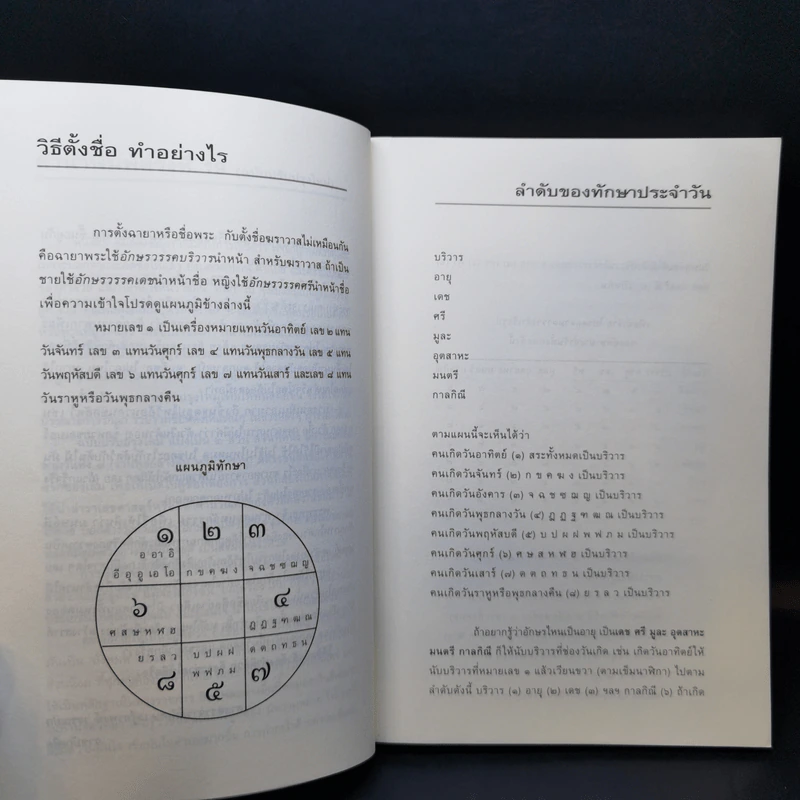 วิธีตั้งชื่อ ทำอย่างไร
การตั้งฉายาหรือชื่อพระ กับตั้งชื่อฆราวาสไม่เหมือนกัน
คือฉายาพระใช้อักษรวรรคบริวารนำหน้า สำหรับฆราวาส ถ้าเป็น
ชายใช้อักษรวรรคเดชนำหน้าชื่อ หญิงใช้อักษรวรรคศรีนำหน้าชื่อ
เพื่อความเข้าใจโปรดดูแผนภูมิข้างล่างนี้
หมายเลข ๑ เป็นเครื่องหมายแทนวันอาทิตย์ เลข ๒ แทน
วันจันทร์ เลข ๓ แทนวันศุกร์ เลข ๔ แทนวันพุธกลางวัน เลข ๕ แทน
วันพฤหัสบดี เลข ๖ แทนวันศุกร์ เลข ๗ แทนวันเสาร์ และเลข ๘ แทน
วันราหูหรือวันพุธกลางคืน
แผนภูมิทักษา
๑ ๒ ๓
อ อา อิ
อี อุ อู เอ โอ ก ข ค ฆ ง จ ฉ ช ซ ฌ ญ
๖ ๔
ศ ส ษ ห ฬ ฮ ฎ ฏ ฐ ฑ ฒ ณ
ย ร ล ว บ ป ผ ฝ ด ต ถ ท ธ น
พ ฟ ภ ม
๘ ๕ ๗
ลำดับของทักษาประจำวัน
บริวาร
อายุ
เดช
ศรี
มูละ
อุตสาหะ
มนตรี
กาลกิณี
ตามแผนนี้จะเห็นได้ว่า
คนเกิดวันอาทิตย์ (๑) สระทั้งหมดเป็นบริวาร
คนเกิดวันจันทร์ (๒) ก ข ค ฆ ง เป็นบริวาร
คนเกิดวันอังคาร (๓) จ ฉ ช ซ ฌ ญ เป็นบริวาร
คนเกิดวันพุธกลางวัน (๔) ฎ ฏ ฐ ฑ ฒ ณ เป็นบริวาร
คนเกิดวันพฤหัสบดี (๕) บ ป ผ ฝ พ ฟ ภ ม เป็นบริวาร
คนเกิดวันศุกร์ (๖) ศ ษ ส ห ฬ ฮ เป็นบริวาร
คนเกิดวันเสาร์ (๗) ด ต ถ ท ธ น เป็นบริวาร
คนเกิดวันราหูหรือพุธกลางคืน (๘) ย ร ล ว เป็นบริวาร
ถ้าอยากรู้ว่าอักษรไหนเป็นอายุ เป็นเดช ศรี มูละ อุตสาหะ
มนตรี กาลกิณี ก็ให้นับบริวารที่ช่องวันเกิด เช่น เกิดวันอาทิตย์ให้
นับบริวารที่หมายเลข ๑ แล้วเวียนขวา (ตามเข็มนาฬิกา) ไปตาม
ลำดับดังนี้ บริวาร (๑) อายุ (๒) เดช (๓) ฯลฯ กาลกิณี (๖) ถ้าเกิด